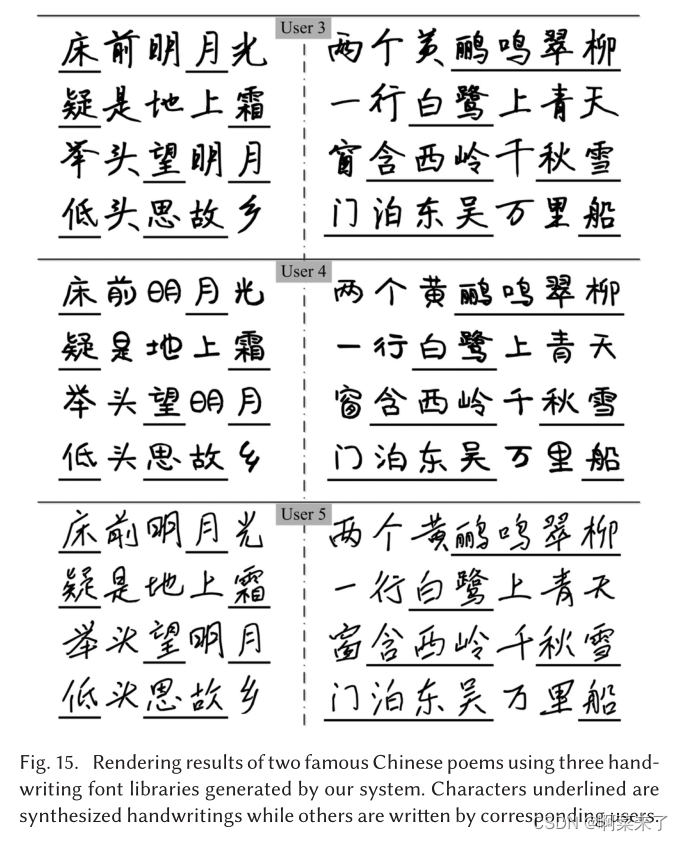 User 3
床前明月光
疑是地上霜
举头望明月
低头思故乡
两个黄鹂鸣翠柳
一行白鹭上青天
窗含西岭千秋雪
门泊东吴万里船
User 4
床前明月光
疑是地上霜
举头望明月
低头思故乡
两个黄鹂鸣翠柳
一行白鹭上青天
窗含西岭千秋雪
门泊东吴万里船
User 5
床前明月光
疑是地上霜
举头望明月
低头思故乡
两个黄鹂鸣翠柳
一行白鹭上青天
窗含西岭千秋雪
门泊东吴万里船
Fig. 15. Rendering results of two famous Chinese poems using three hand-
writing font libraries generated by our system. Characters underlined are
synthesized handwritings while others are written by corresponding users.
CSDN @啊菜来了